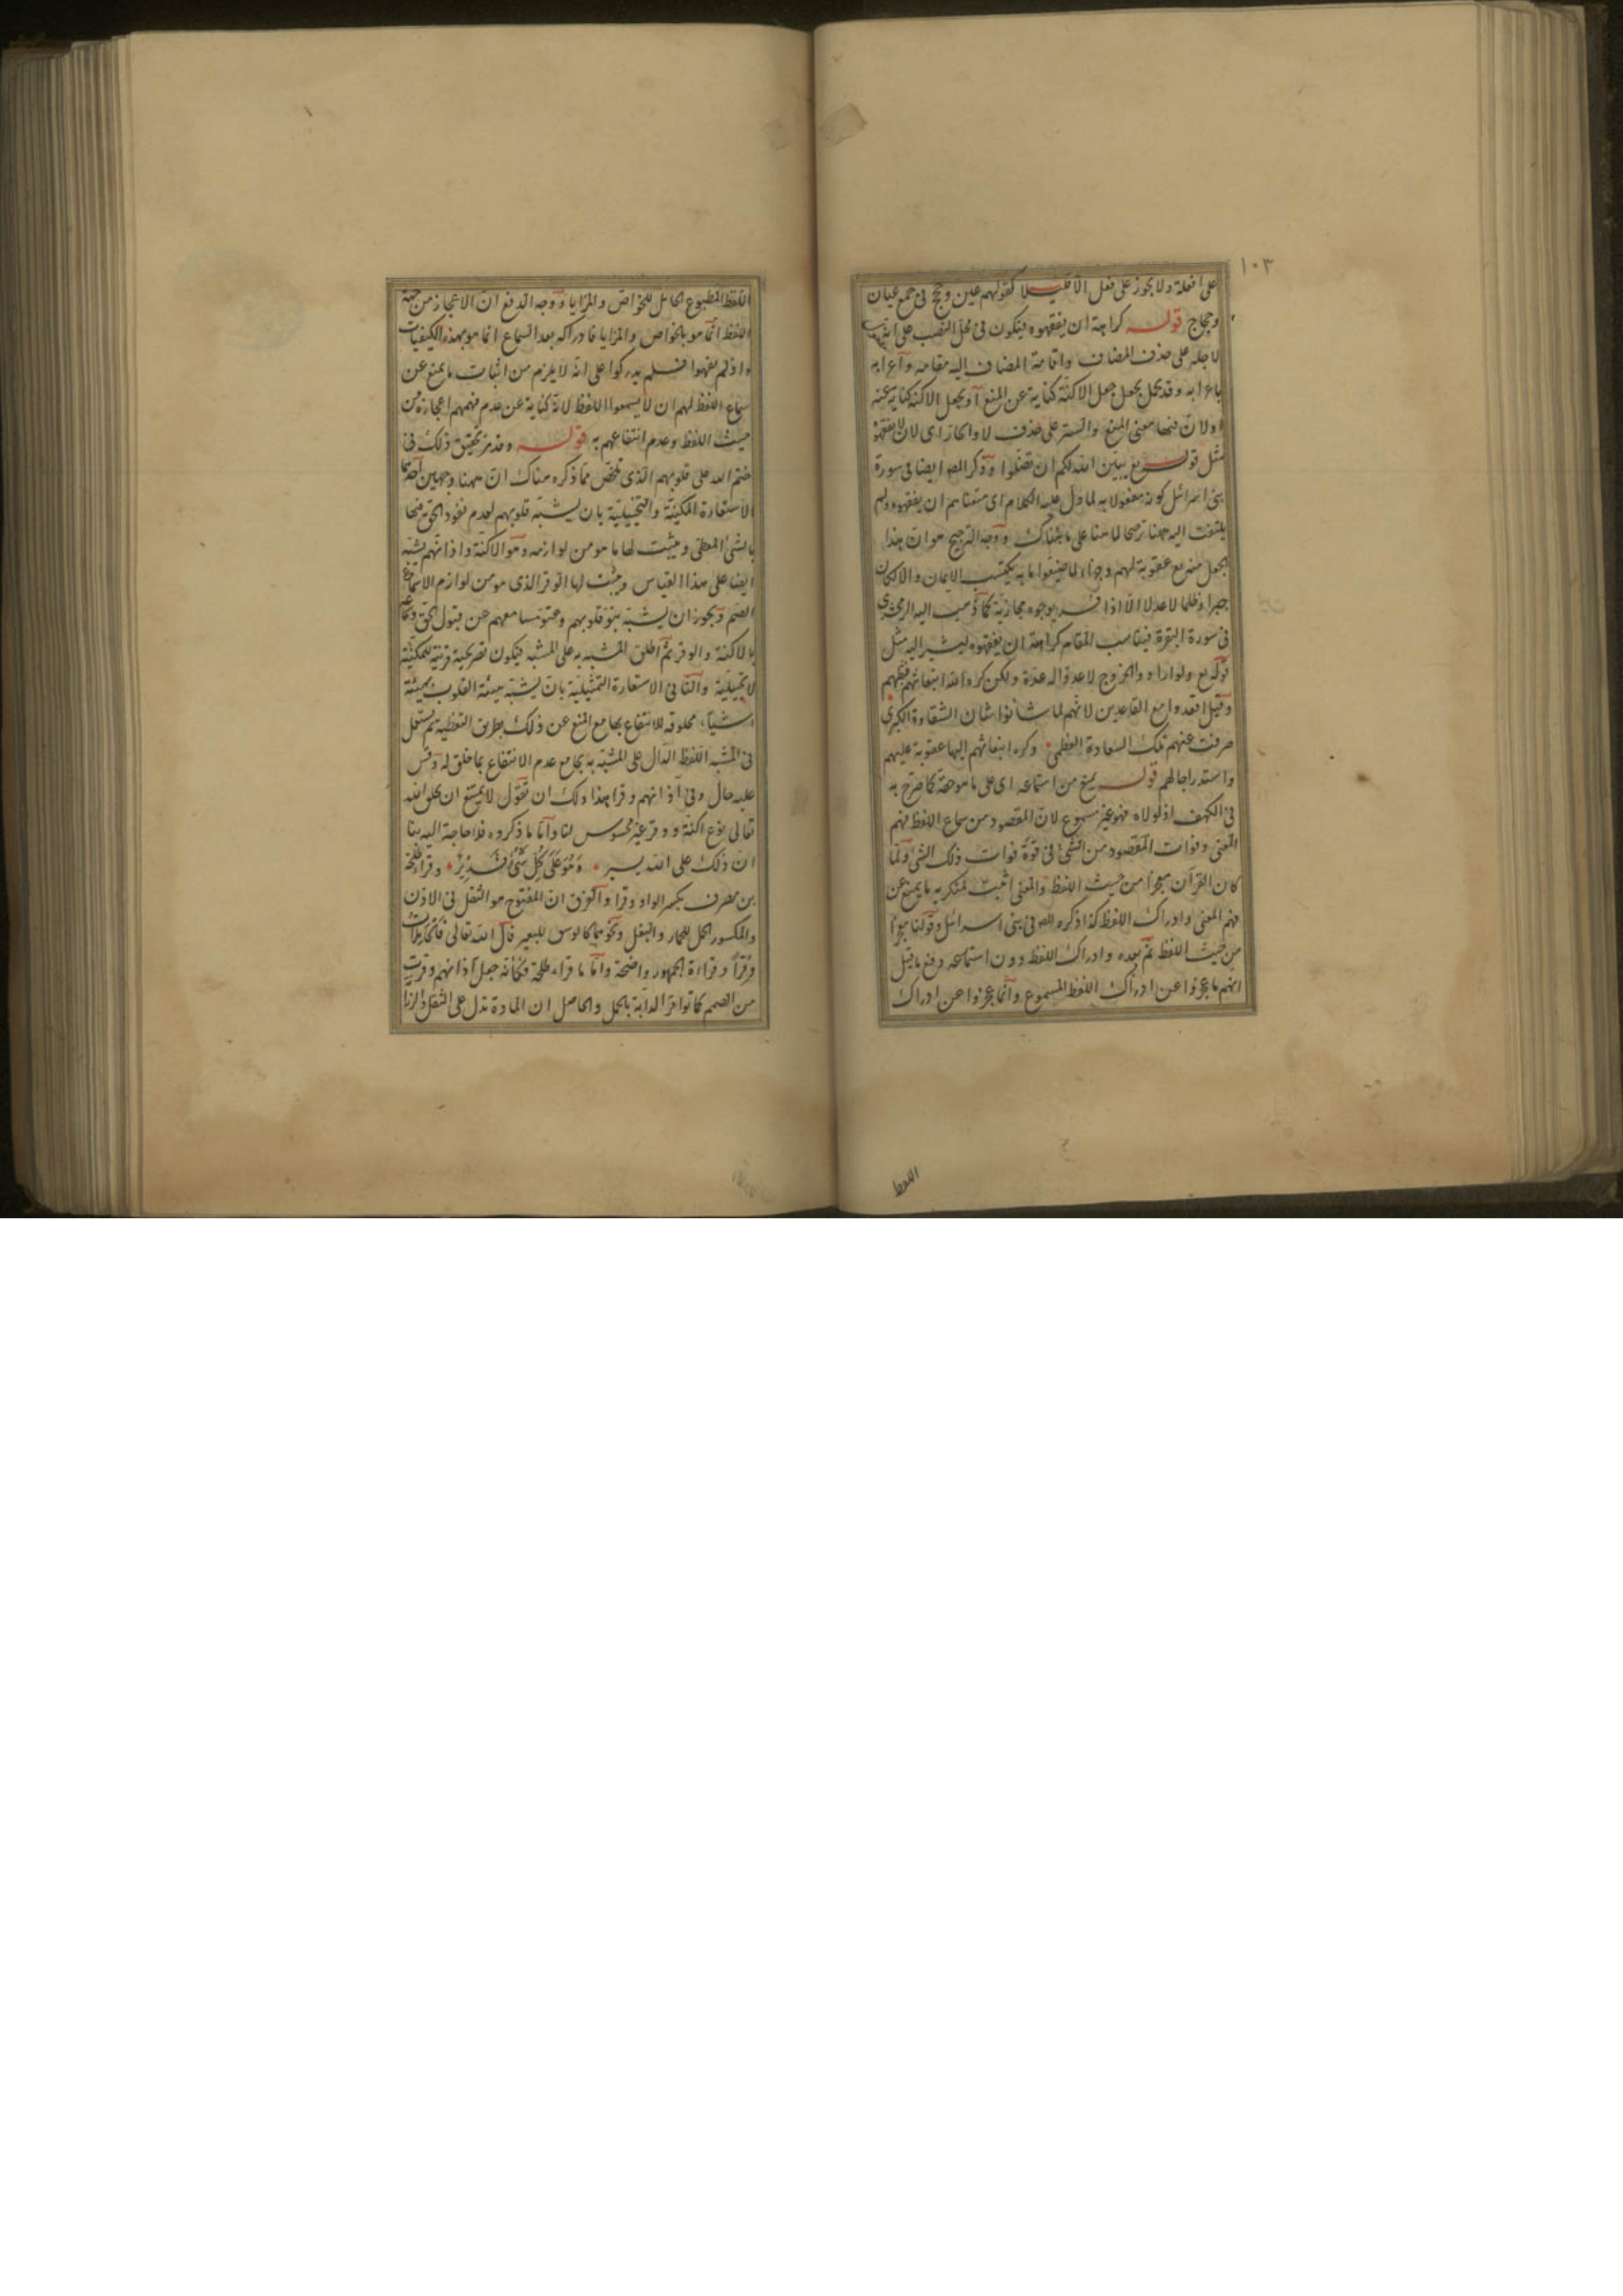 ١٠٣
على افعلة ولا يجوز على فعل الا قليلا كقولهم عين وحجج فى جمع عيان
وحجاج قوله كراهة ان يفقهوه فيكون فى محل النصب على انه
لاجله على حذف المضاف واقامة المضاف اليه مقامه واعرابه
باعرابه وقد يحمل يجعل جعل الاكنة كناية عن المنع او يجعل الاكنة كناية عنه
اولا لان فيها معنى المنع والستر على حذف لا والجار اى لان لا يفقهوه
مثل قوله تع يبين الله لكم ان تضلوا وذكر المص ايضا فى سورة
بنى اسرائل كونه مفعولا به لما دل عليه الكلام اى منعناهم ان يفقهوه ولم
يلتفت اليه ههنا ترجيحا لما هنا على ما هناك ووجه الترجيح هو ان هذا
الجعل منه تع عقوبة لهم وجزاء لما صنعوا ما به يكتسب الايمان والا لكان
جبرا وظلما لا عدلا الا اذا فسر بوجوه مجازية كما ذهب اليه الزمخشرى
فى سورة البقرة فيناسب المقام كراهة ان يفقهوه ليشير اليه مثل
قوله تع ولو ارادوا الخروج لاعدوا له عدة ولكن كره الله انبعاثهم فثبطهم
وقيل اقعدوا مع القاعدين لانهم لما شأنوا شان الشقاوة الكبرى
صرفت عنهم تلك السعادة العظمى وكره انبعاثهم اليها عقوبة عليهم
واستدراجا لهم قوله يمنع من استماعه اى على ما هو حقه كما صرح به
فى الكهف اذ لولاه فهو غير مسموع لان المقصود من سماع اللفظ فهم
المعنى وفوات المقصود من الشئ فى قوة فوات ذلك الشئ ولما
كان القرآن معجزا من حيث اللفظ والمعنى اثبت لمنكريه ما يمنع عن
فهم المعنى وادراك اللفظ كذا ذكره المص فى بنى اسرائل وقولنا معجزا
من حيث اللفظ ثم بعده وادراك اللفظ دون استماعه دفع ما قيل
انهم ما عجزوا عن ادراك اللفظ المسموع وانما عجزوا عن ادراك
اللفظ
اللفظ المطبوع الحامل للخواص والمزايا ووجه الدفع ان الاعجاز من جهة
اللفظ انما هو بالخواص والمزايا فادراكه بعد السماع انما هو بهذه الكيفيات
واذ لم يفهموا فلم يدركوا على انه لا يلزم من اثبات ما يمنع عن
سماع اللفظ لهم ان لا يسمعوا اللفظ لانه كناية عن عدم فهمهم اعجازه من
حيث اللفظ وعدم انتفاعهم به قوله وقد مر تحقيق ذلك فى
ختم الله على قلوبهم الذى تلخص مما ذكره هناك ان ههنا وجهين احدهما
الاستعارة المكنية والتخييلية بان يشبه قلوبهم لعدم نفوذ الحق فيها
بالشئ المغطى ويثبت لها ما هو من لوازمه وهو الاكنة واذانهم يشبه
ايضا على هذا القياس ويثبت لها الوقر الذى هو من لوازم الاسماع
الصم ويجوز ان يشبه نبو قلوبهم ومسامعهم عن قبول الحق
بالاكنة والوقر ثم اطلق المشبه به على المشبه فيكون تصريحية قرينة للمكنية
لا تخييلية والثانى الاستعارة التمثيلية بان يشبه هيئة القلوب بهيئة
اشياء مخلوقة للانتفاع بها مع المنع عن ذلك بطريق التغطية ثم يستعمل
فى المشبه اللفظ الدال على المشبه به بجامع عدم الانتفاع بما خلق له وقس
عليه حال وفى آذانهم وقرا هذا ولك ان تقول لا يمتنع ان يخلق الله
تعالى نوع اكنة ووقر غير محسوس لنا واما ما ذكروه فلا حاجة اليه هنا
ان ذلك على الله يسير وَهُوَ عَلَى كُلِّ شَئٍ قَدِيرٌ وقرأ طلحة
بن مصرف بكسر الواو وقرا والفرق ان المفتوح هو الثقل فى الاذن
والمكسور الحمل للحمار والبغل ونحوهما كالوسق للبعير قال الله تعالى فَالْحَامِلَاتِ
وِقْرًا وقراءة الجمهور واضحة واما ما قراء طلحة فكأنه جعل آذانهم وقرت
من الصمم كما توقر الدابة بالحمل والحاصل ان المادة تدل على الثقل والرزانة